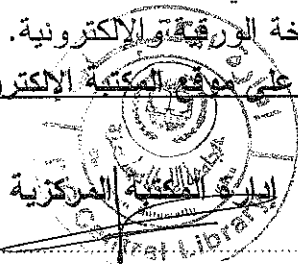 خة الورقية و الإلكترونية.
على موقع المكتبة الإلكترو
إدارة المكتبة المركزية
Central Library